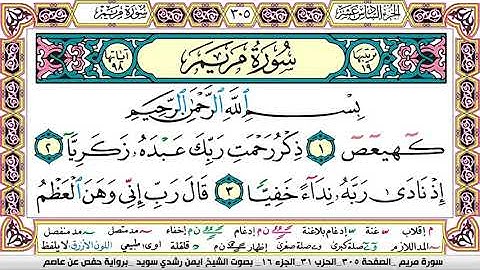 الجزء السادس عشر ٣٠٥ سورة مريم
ترتيبها ١٩ سُورَةُ مَرْيَمَ آياتها ٩٨
بِسْمِ اللَّهِ الرَّحْمَٰنِ الرَّحِيمِ
كٓهيعٓصٓ ١ ذِكْرُ رَحْمَتِ رَبِّكَ عَبْدَهُۥ زَكَرِيَّآ ٢
إِذْ نَادَىٰ رَبَّهُۥ نِدَآءً خَفِيًّا ٣ قَالَ رَبِّ إِنِّي وَهَنَ الْعَظْمُ
م إقلاب غنة إدغام بلاغنة ن م إدغام إخفاء مد متصل مد منفصل
المد اللازم صلة كبرى صلة صغرى إظهار ن م قلقلة أوى: طبيعي اللون الأزرق لا يلفظ
سورة مريم _ الصفحة ٣٠٥ _ الحزب ٣١ _ الجزء ١٦ _ بصوت الشيخ أيمن رشدي سويد _ برواية حفص عن عاصم